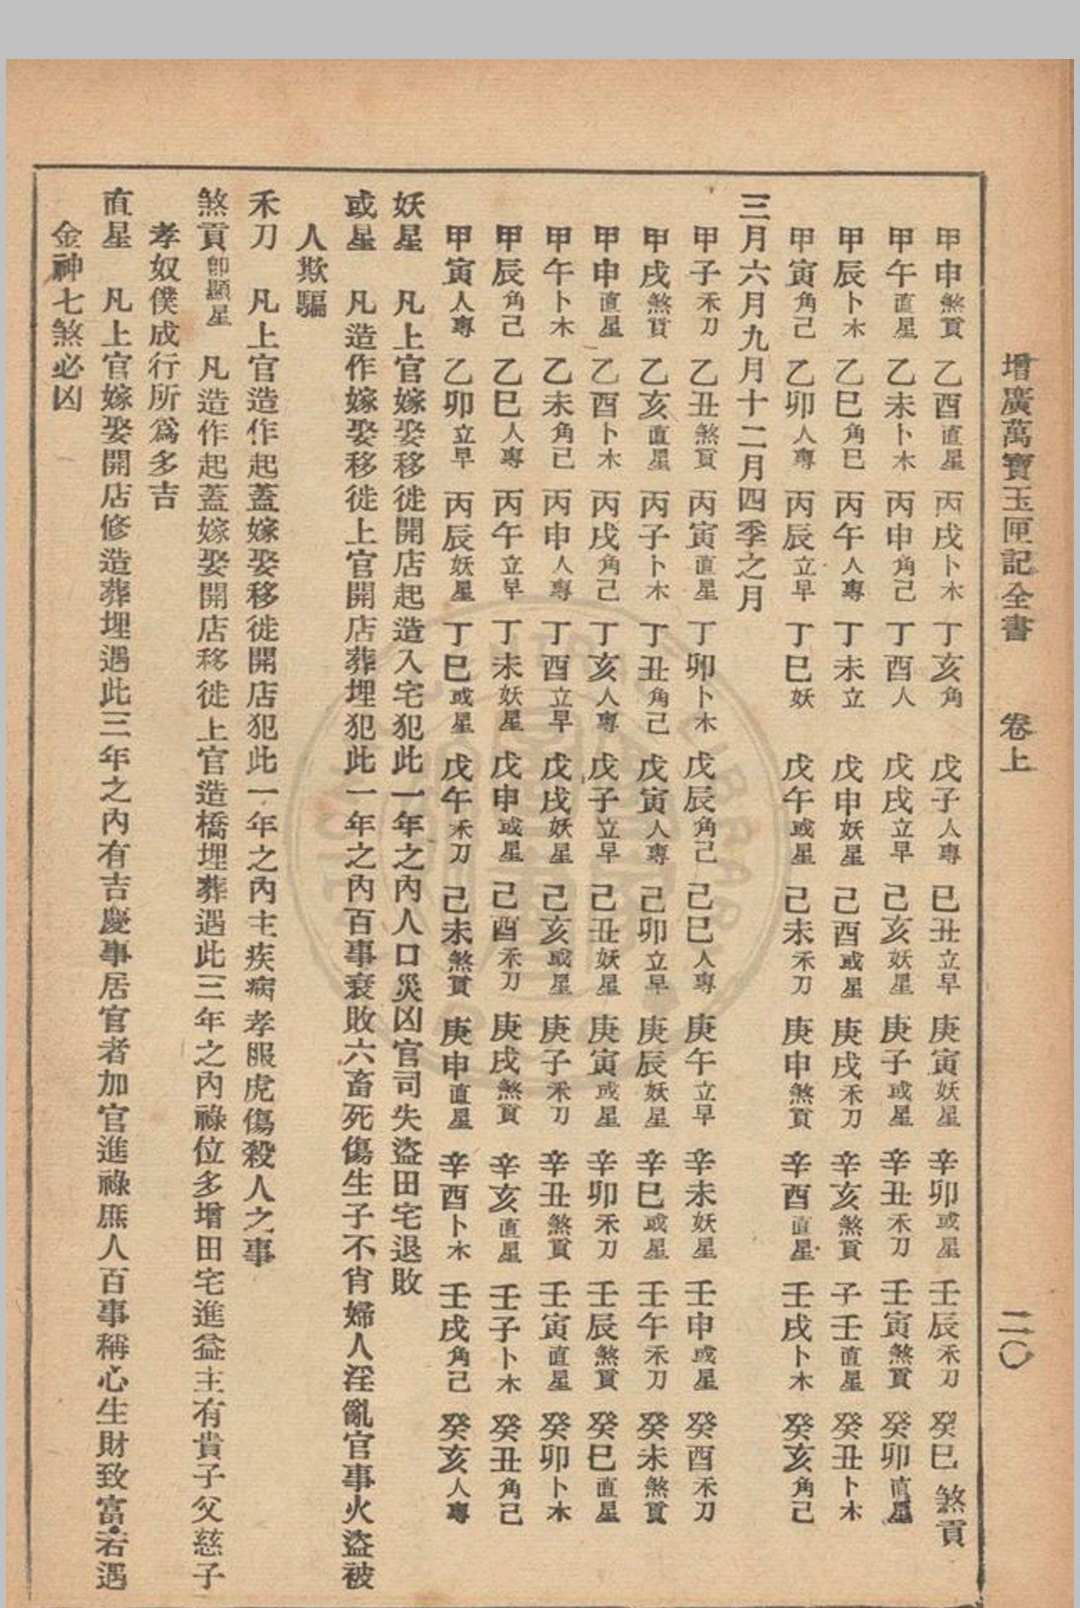 增廣萬寶玉匣記全書 卷上 二〇
甲申煞貢 乙酉直星 丙戌卜木 丁亥角 戊子人專 己丑立早 庚寅妖星 辛卯或星 壬辰禾刀 癸巳煞貢
甲午直星 乙未卜木 丙申角己 丁酉人 戊戌立早 己亥妖星 庚子或星 辛丑禾刀 壬寅煞貢 癸卯直星
甲辰卜木 乙巳角巳 丙午人專 丁未立 戊申妖星 己酉或星 庚戌禾刀 辛亥煞貢 子壬直星 癸丑卜木
甲寅角己 乙卯人專 丙辰立早 丁巳妖 戊午或星 己未禾刀 庚申煞貢 辛酉直星 壬戌卜木 癸亥角己
三月六月九月十二月四季之月
甲子禾刀 乙丑煞貢 丙寅直星 丁卯卜木 戊辰角己 己巳人專 庚午立早 辛未妖星 壬申或星 癸酉禾刀
甲戌煞貢 乙亥直星 丙子卜木 丁丑角己 戊寅人專 己卯立早 庚辰妖星 辛巳或星 壬午禾刀 癸未煞貢
甲申直星 乙酉卜木 丙戌角己 丁亥人專 戊子立早 己丑妖星 庚寅或星 辛卯禾刀 壬辰煞貢 癸巳直星
甲午卜木 乙未角己 丙申人專 丁酉立早 戊戌妖星 己亥或星 庚子禾刀 辛丑煞貢 壬寅直星 癸卯卜木
甲辰角己 乙巳人專 丙午立早 丁未妖星 戊申或星 己酉禾刀 庚戌煞貢 辛亥直星 壬子卜木 癸丑角己
甲寅人專 乙卯立早 丙辰妖星 丁巳或星 戊午禾刀 己未煞貢 庚申直星 辛酉卜木 壬戌角己 癸亥人專
妖星 凡上官嫁娶移徙開店起造入宅犯此一年之內人口災凶官司失盜田宅退敗
或星 凡造作嫁娶移徙上官開店葬埋犯此一年之內百事衰敗六畜死傷生子不肖婦人淫亂官事火盜被
人欺騙
禾刀 凡上官造作起蓋嫁娶移徙開店犯此一年之內主疾病孝服虎傷殺人之事
煞貢即顯星 凡造作起蓋嫁娶開店移徙上官造橋埋葬遇此三年之內祿位多增田宅進益主有貴子父慈子
孝奴僕成行所爲多吉
直星 凡上官嫁娶開店修造葬埋遇此三年之內有吉慶事居官者加官進祿庶人百事稱心生財致富若遇
金神七煞必凶